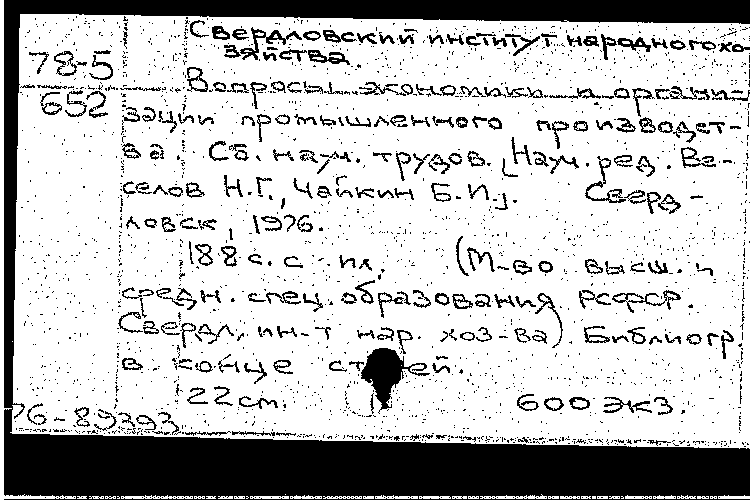 Свердловский институт народного хо-
зяйства.
78-5
Вопросы экономики и органи-
652
зации промышленного производст-
ва. Сб. науч. трудов. [Науч. ред. Ве-
селов Н.Г., Чайкин Б.И.]. Сверд-
ловск, 1976.
188 с. с ил. (М-во высш. и
средн. спец. образования РСФСР.
Свердл. ин-т нар. хоз-ва). Библиогр.
в конце статей.
22 см. 600 экз.
76-89393